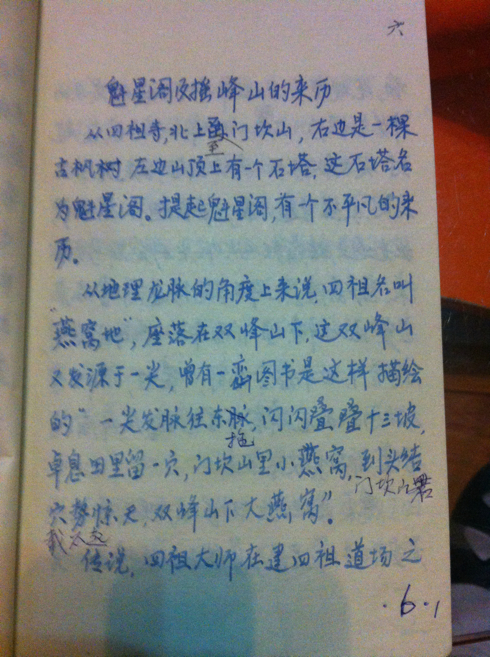 六
魁星阁及摇峰山的来历
从四祖寺,北上至门坎山,右边是一棵
古枫树,左边山顶上有一个石塔,这石塔名
为魁星阁。提起魁星阁,有个不平凡的来
历。
从地理龙脉的角度上来说,四祖名叫
“燕窝地”,座落在双峰山下,这双峰山
又发源于一尖,曾有一图书是这样描绘
的“一尖发脉往东拖,闪闪叠叠十三坡,
卓息田里留一穴,门坎山里小燕窝,到头结
门坎
穴势惊天,双峰山下大燕窝”。
传说,四祖大师在建四祖道场之
·6·1